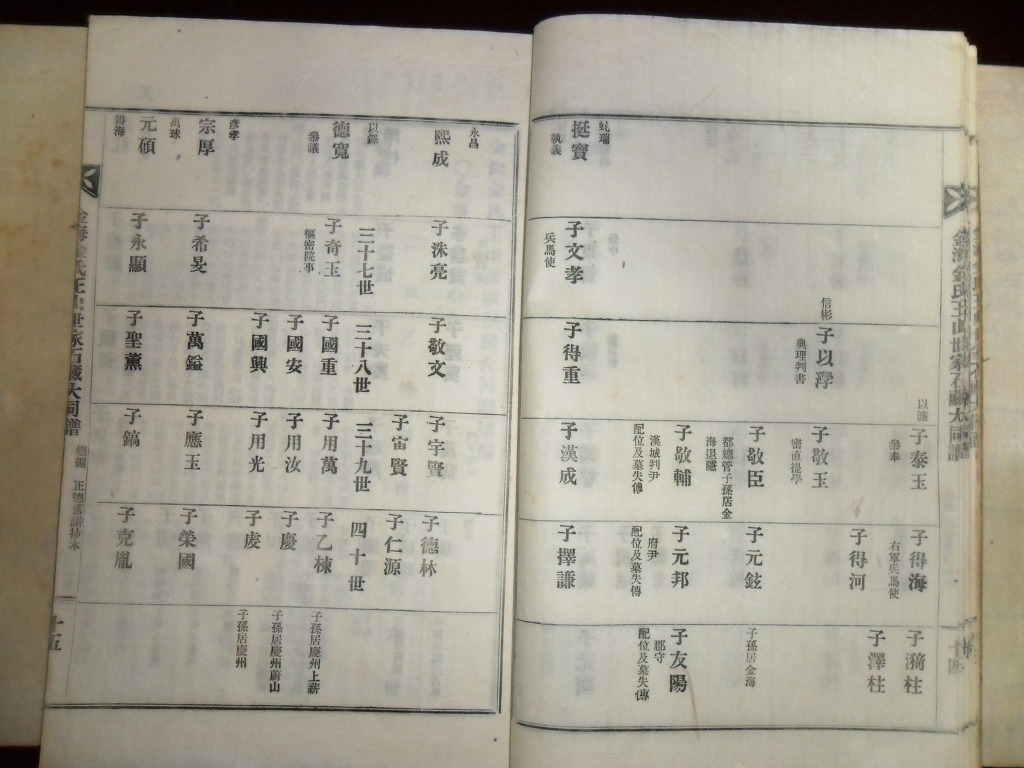 以濂
子泰玉
子得海
右軍兵馬使
子澤柱
子得河
信彬
典理判書
子敬玉
密直提學
子敬臣
都總管子孫居金
海退隱
子元鉉
子孫居金海
子敬輔
漢城判尹
配位及墓失傳
子元邦
府尹
配位及墓失傳
子友陽
郡守
配位及墓失傳
挺寶
執義
子文孝
兵馬使
子得重
子漢成
子擇謙
永昌
熙成
子洙亮
子敬文
子宇賢
子德林
子宙賢
子仁源
三十七世
三十八世
三十九世
四十世
德寬
子奇玉
樞密院事
子國重
子用萬
子乙棟
子孫居慶州上薪
子國安
子用汝
子慶
子孫居慶州蔚山
子國興
子用光
子虔
子孫居慶州
彦孝
宗厚
萬球
子希旻
子萬鎰
子應玉
子榮國
元碩
子永顯
子聖薰
子鎬
子克胤
總編 正德舊譜抄本
十五